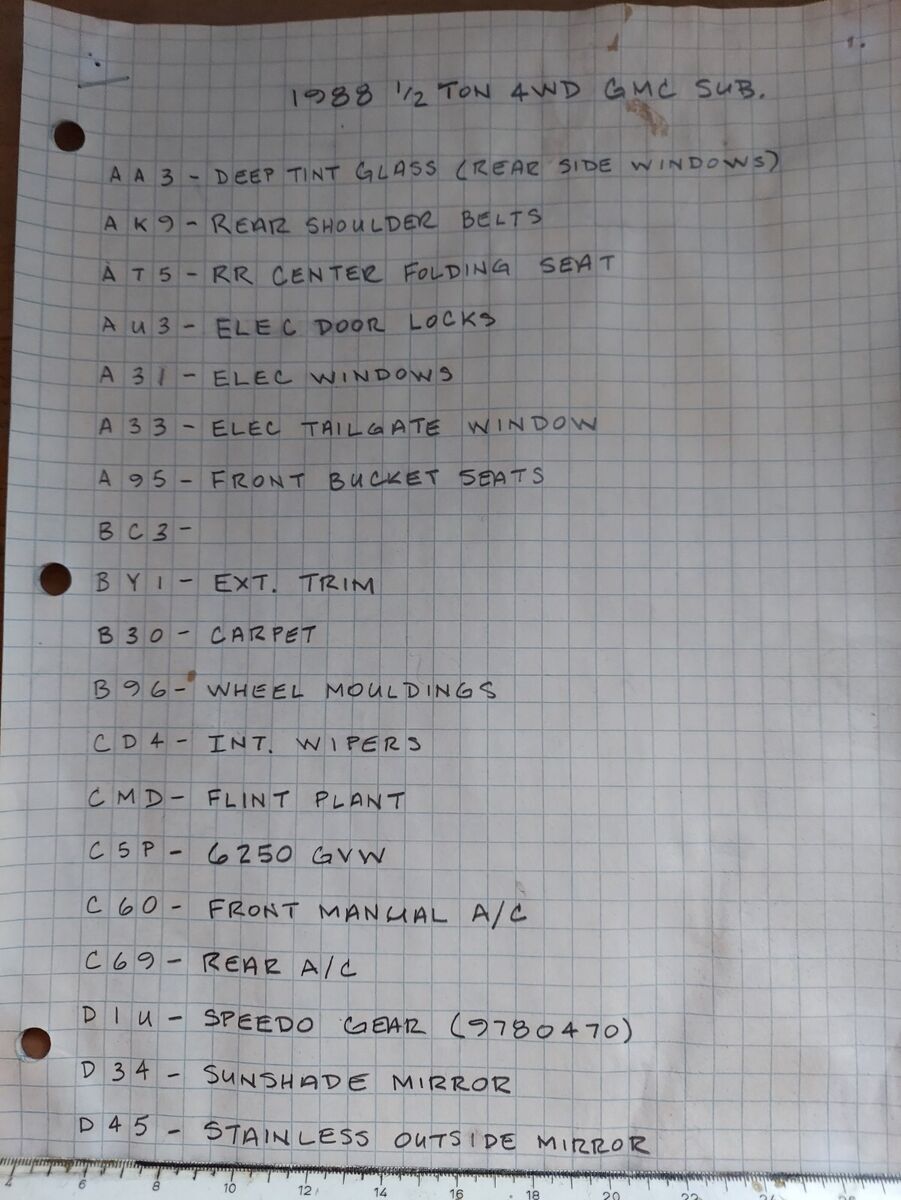 1.
1988 1/2 TON 4WD GMC SUB.
AA3 - DEEP TINT GLASS (REAR SIDE WINDOWS)
AK9 - REAR SHOULDER BELTS
AT5 - RR CENTER FOLDING SEAT
AU3 - ELEC DOOR LOCKS
A31 - ELEC WINDOWS
A33 - ELEC TAILGATE WINDOW
A95 - FRONT BUCKET SEATS
BC3 -
BY1 - EXT. TRIM
B30 - CARPET
B96 - WHEEL MOULDINGS
CD4 - INT. WIPERS
CMD - FLINT PLANT
C5P - 6250 GVW
C60 - FRONT MANUAL A/C
C69 - REAR A/C
D1U - SPEEDO GEAR (9780470)
D34 - SUNSHADE MIRROR
D45 - STAINLESS OUTSIDE MIRROR
4 6 8 10 12 14 16 18 20 22 24 26